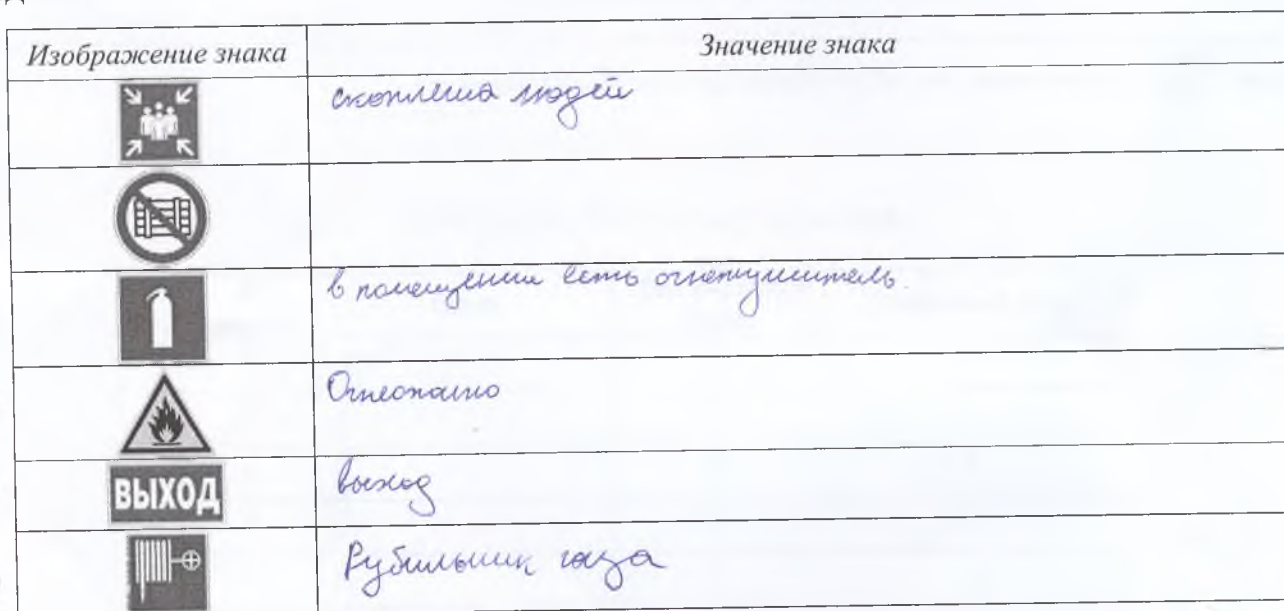 Изображение знака Значение знака
скопления людей
в помещении есть огнетушитель.
Огнеопасно
ВЫХОД выход
Рубильник газа